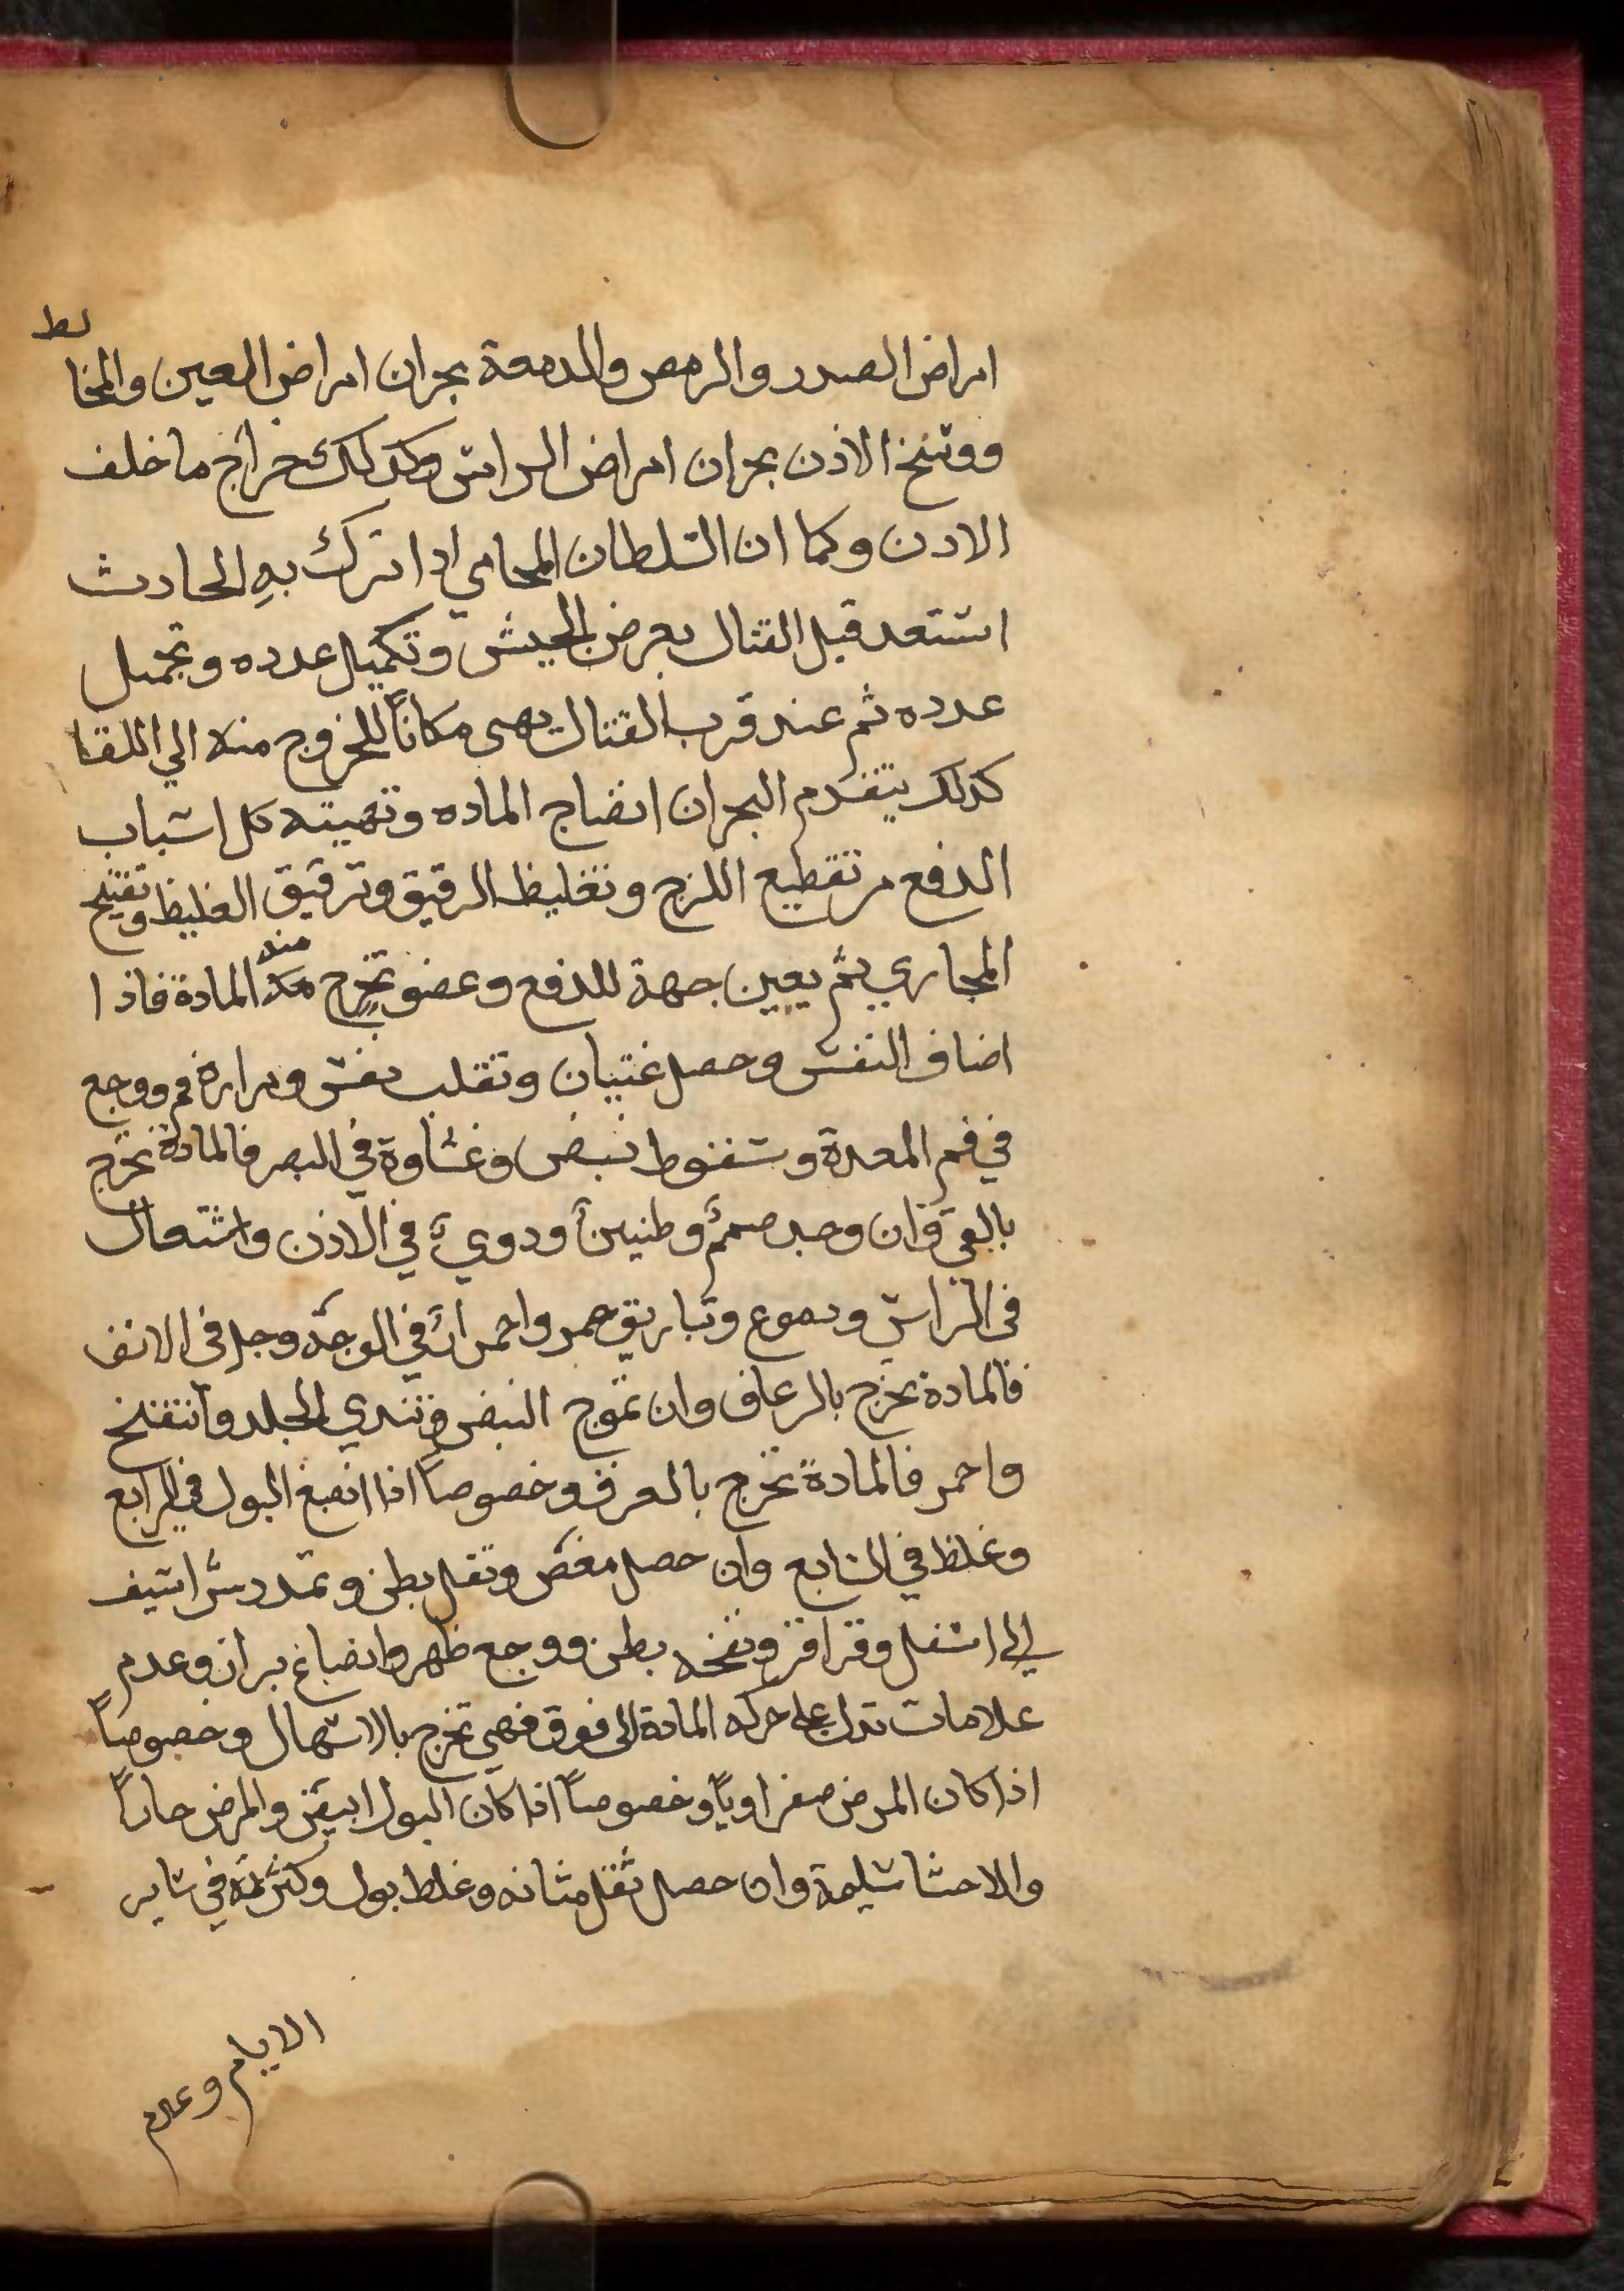 امراض الصدر والرمص والدمعة بحران امراض العين والمخاط
ووسخ الاذن بحران امراض الراس وكدلك خراج ما خلف
الادن وكما ان السلطان المحامي ادا ترك به الحادث
استعد قبل القتال بعرض الجيش وتكميل عدده وتجميل
عدده ثم عند قرب القتال يهى مكاناً للخروج منه الي اللقا
كدلك يتقدم البحران انضاج الماده وتهيته كل اسباب
الدفع من تقطيع اللزج وتغليظ الرقيق وترقيق الغليظ وتفتيح
المجاري ثم يعين جهة للدفع وعضو تخرج منه المادة فاذا
اضاف النفس وحصل غتيان وتقلب نفس ومرارة فم ووجع
في فم المعدة وسقوط نبض وغشاوة في البصر فالمادة تخرج
بالقى وان وجد صمم وطنين ودوي في الاذن واشتعال
فى الراس ودموع وتباريق حمر واحمرار في الوجه وحك فى الانف
فالمادة تخرج بالرعاف وان تموج النبض وتندي الجلد وانتفخ
واحمر فالمادة تخرج بالعرق وخصوصاً اذا انصبغ البول في الرابع
وغلظ في السابع وان حصل مغص وثقل بطن وتمدد شراسيف
الى اسفل وقراقر ونفخه بطن ووجع ظهر وانصباغ براز وعدم
علامات تدل على حركه المادة الى فوق فهى تخرج بالاسهال وخصوصاً
اذا كان المرض صفراوياً وخصوصاً اذا كان البول ابيض والمرض حاداً
والاحشا سليمة وان حصل ثقل مثانه وغلظ بول وكثرته في ساير
الايام وعدم